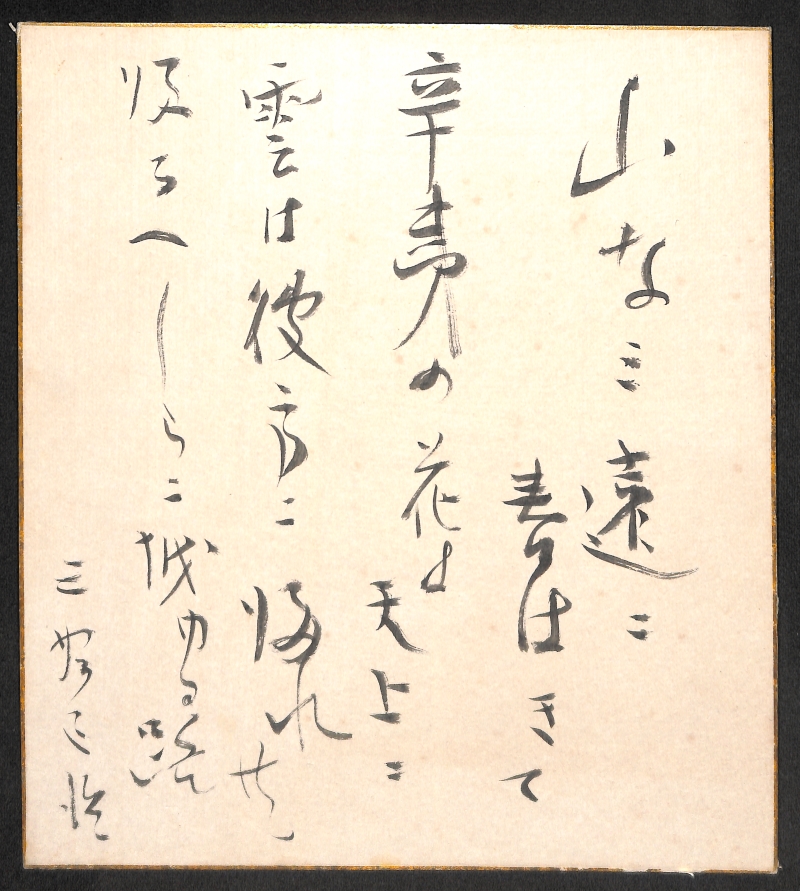 山なミ遠ニ
春はきて
辛夷の花は
天上ニ
雲は彼方ニ帰れ共
帰るへしらニ越ゆる路
三好達治